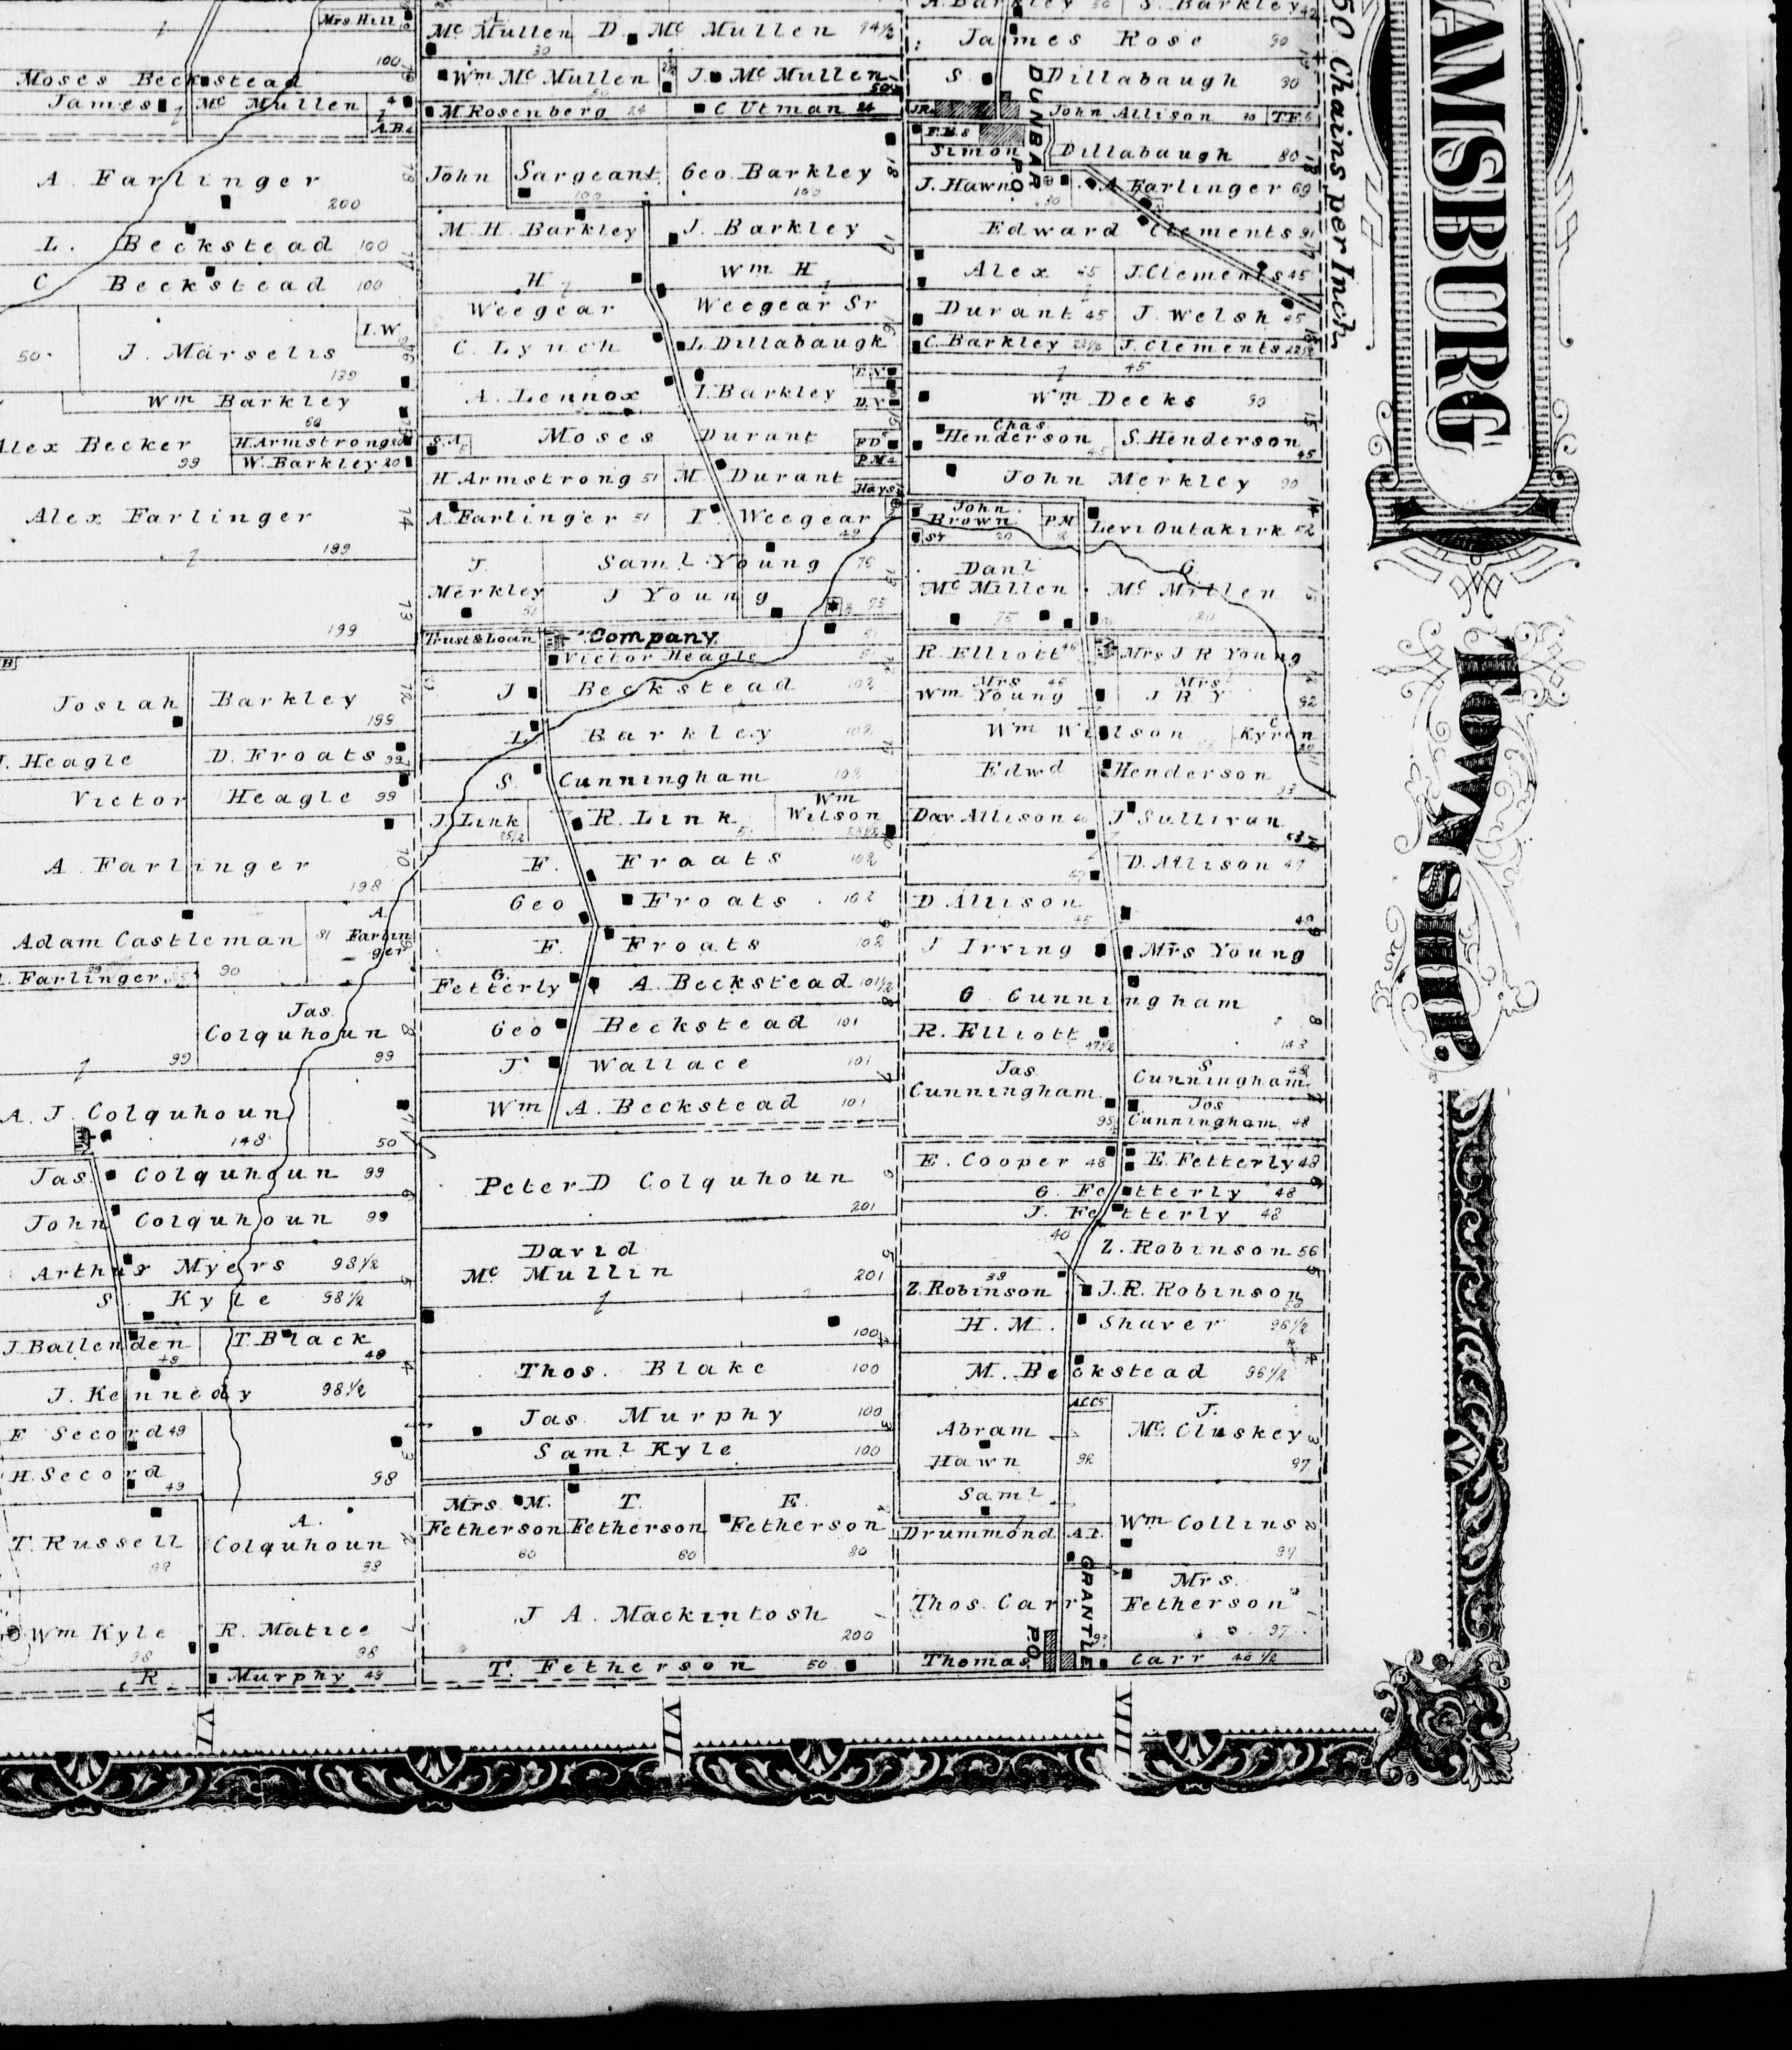 Mrs. Hill
100
Moses Beckstead
James Mc Mullen 4
A.B.
A Farlinger
200
L. Beckstead 100
C Beckstead 100
I.W.
50
J. Marselis
139
Wm Barkley
60
Alex Becker
99
H. Armstrong
W. Barkley 20
Alex Farlinger
199
14
13
199
Josiah Barkley
199
12
J. Heagle D. Froats 99
Victor Heagle 99
A Farlinger
198
10
Adam Castleman 81
A. Farlinger
Farlinger
90
Jas. Colquhoun
99
99
8
A. J. Colquhoun
148
50
Jas Colquhoun 99
John Colquhoun 99
6
Arthur Myers 98 1/2
S. Kyle 98 1/2
5
J. Ballenden T. Black
48
J. Kennedy 98 1/2
4
E Secord 49
H. Secord
49
98
3
T. Russell
99
A. Colquhoun
99
2
Wm Kyle
98
R. Matice
98
R Murphy 49
VI
Mc Mullen
30
D. Mc Mullen 94 1/2
Wm Mc Mullen
50
J. Mc Mullen
50
M Rosenberg 24
C Utman 24
John Sargeant
100
Geo. Barkley
100
18
M. H. Barkley J. Barkley
17
H Weegear
Wm H Weegear Sr
16
C. Lynch L. Dillabaugh
A. Lennox I. Barkley
S.A.
Moses Durant
P.M.
H Armstrong 51 M. Durant
Hays
A. Farlinger 51 I. Weegear
49
J. Merkley
51
Saml Young 76
J Young 75
13
Trust & Loan Company
51
Victor Heagle 51
J Beckstead 102
L Barkley 102
S. Cunningham 102
J. Link
25 1/2
R. Link
51
Wm Wilson
25 1/2
F. Froats 102
Geo Froats 102
F. Froats 102
G. Fetterly A. Beckstead 101 1/2
8
Geo Beckstead 101
J Wallace 101
7
Wm A. Beckstead 101
Peter D Colquhoun
201
6
David Mc Mullin
201
5
100
Thos. Blake 100
Jas Murphy 100
3
Saml Kyle 100
Mrs. M. Fetherson
60
T. Fetherson
60
E. Fetherson
80
2
J A. Mackintosh
200
1
T. Fetherson 50
VII
A. Barkley 50 S. Barkley
James Rose 90
S Dillabaugh 30
DUNBAR PO
J.R.
John Allison 30 T.F.
Simon Dillabaugh 80
J. Hawn
30
A Farlinger 69
Edward Clements 91
Alex Durant
45
45
J. Clements 45
J. Welsh 45
C. Barkley 22 1/2 J. Clements 22 1/2
45
Wm Deeks 90
15
Chas. Henderson
45
S. Henderson
45
John Merkley 90
John Brown
20
P.M.
Levi Outakirk 52
Danl Mc Millen
75
G. Mc Millen
120
R. Elliott 46 Mrs J R Young
Mrs Wm Young 46
Mrs J R Y
92
Wm Wilson
C Kyron
20
Edwd Henderson
93
Dav. Allison J Sullivan
53
D. Allison 47
47
D Allison
45
49
J Irving Mrs Young
G. Cunningham
143
8
R. Elliott
47 1/2
Jas Cunningham
95
S Cunningham
48
Jos Cunningham 48
E. Cooper 48 E. Fetterly 48
G. Fetterly 48
J. Fetterly 48
40
Z. Robinson 56
Z. Robinson
39
J. R. Robinson
58
H. M. Shaver 96 1/2
M. Beckstead 96 1/2
4
Abram Hawn
92
J. Mc Cluskey
97
3
Saml Drummond A.I.
Wm Collins
97
2
GRANTLEY PO
Thos. Carr
Mrs. Fetherson
97
1
Thomas Carr 48 1/2
VIII
50 Chains per Inch
AMSBURG
TOWNSHIP.